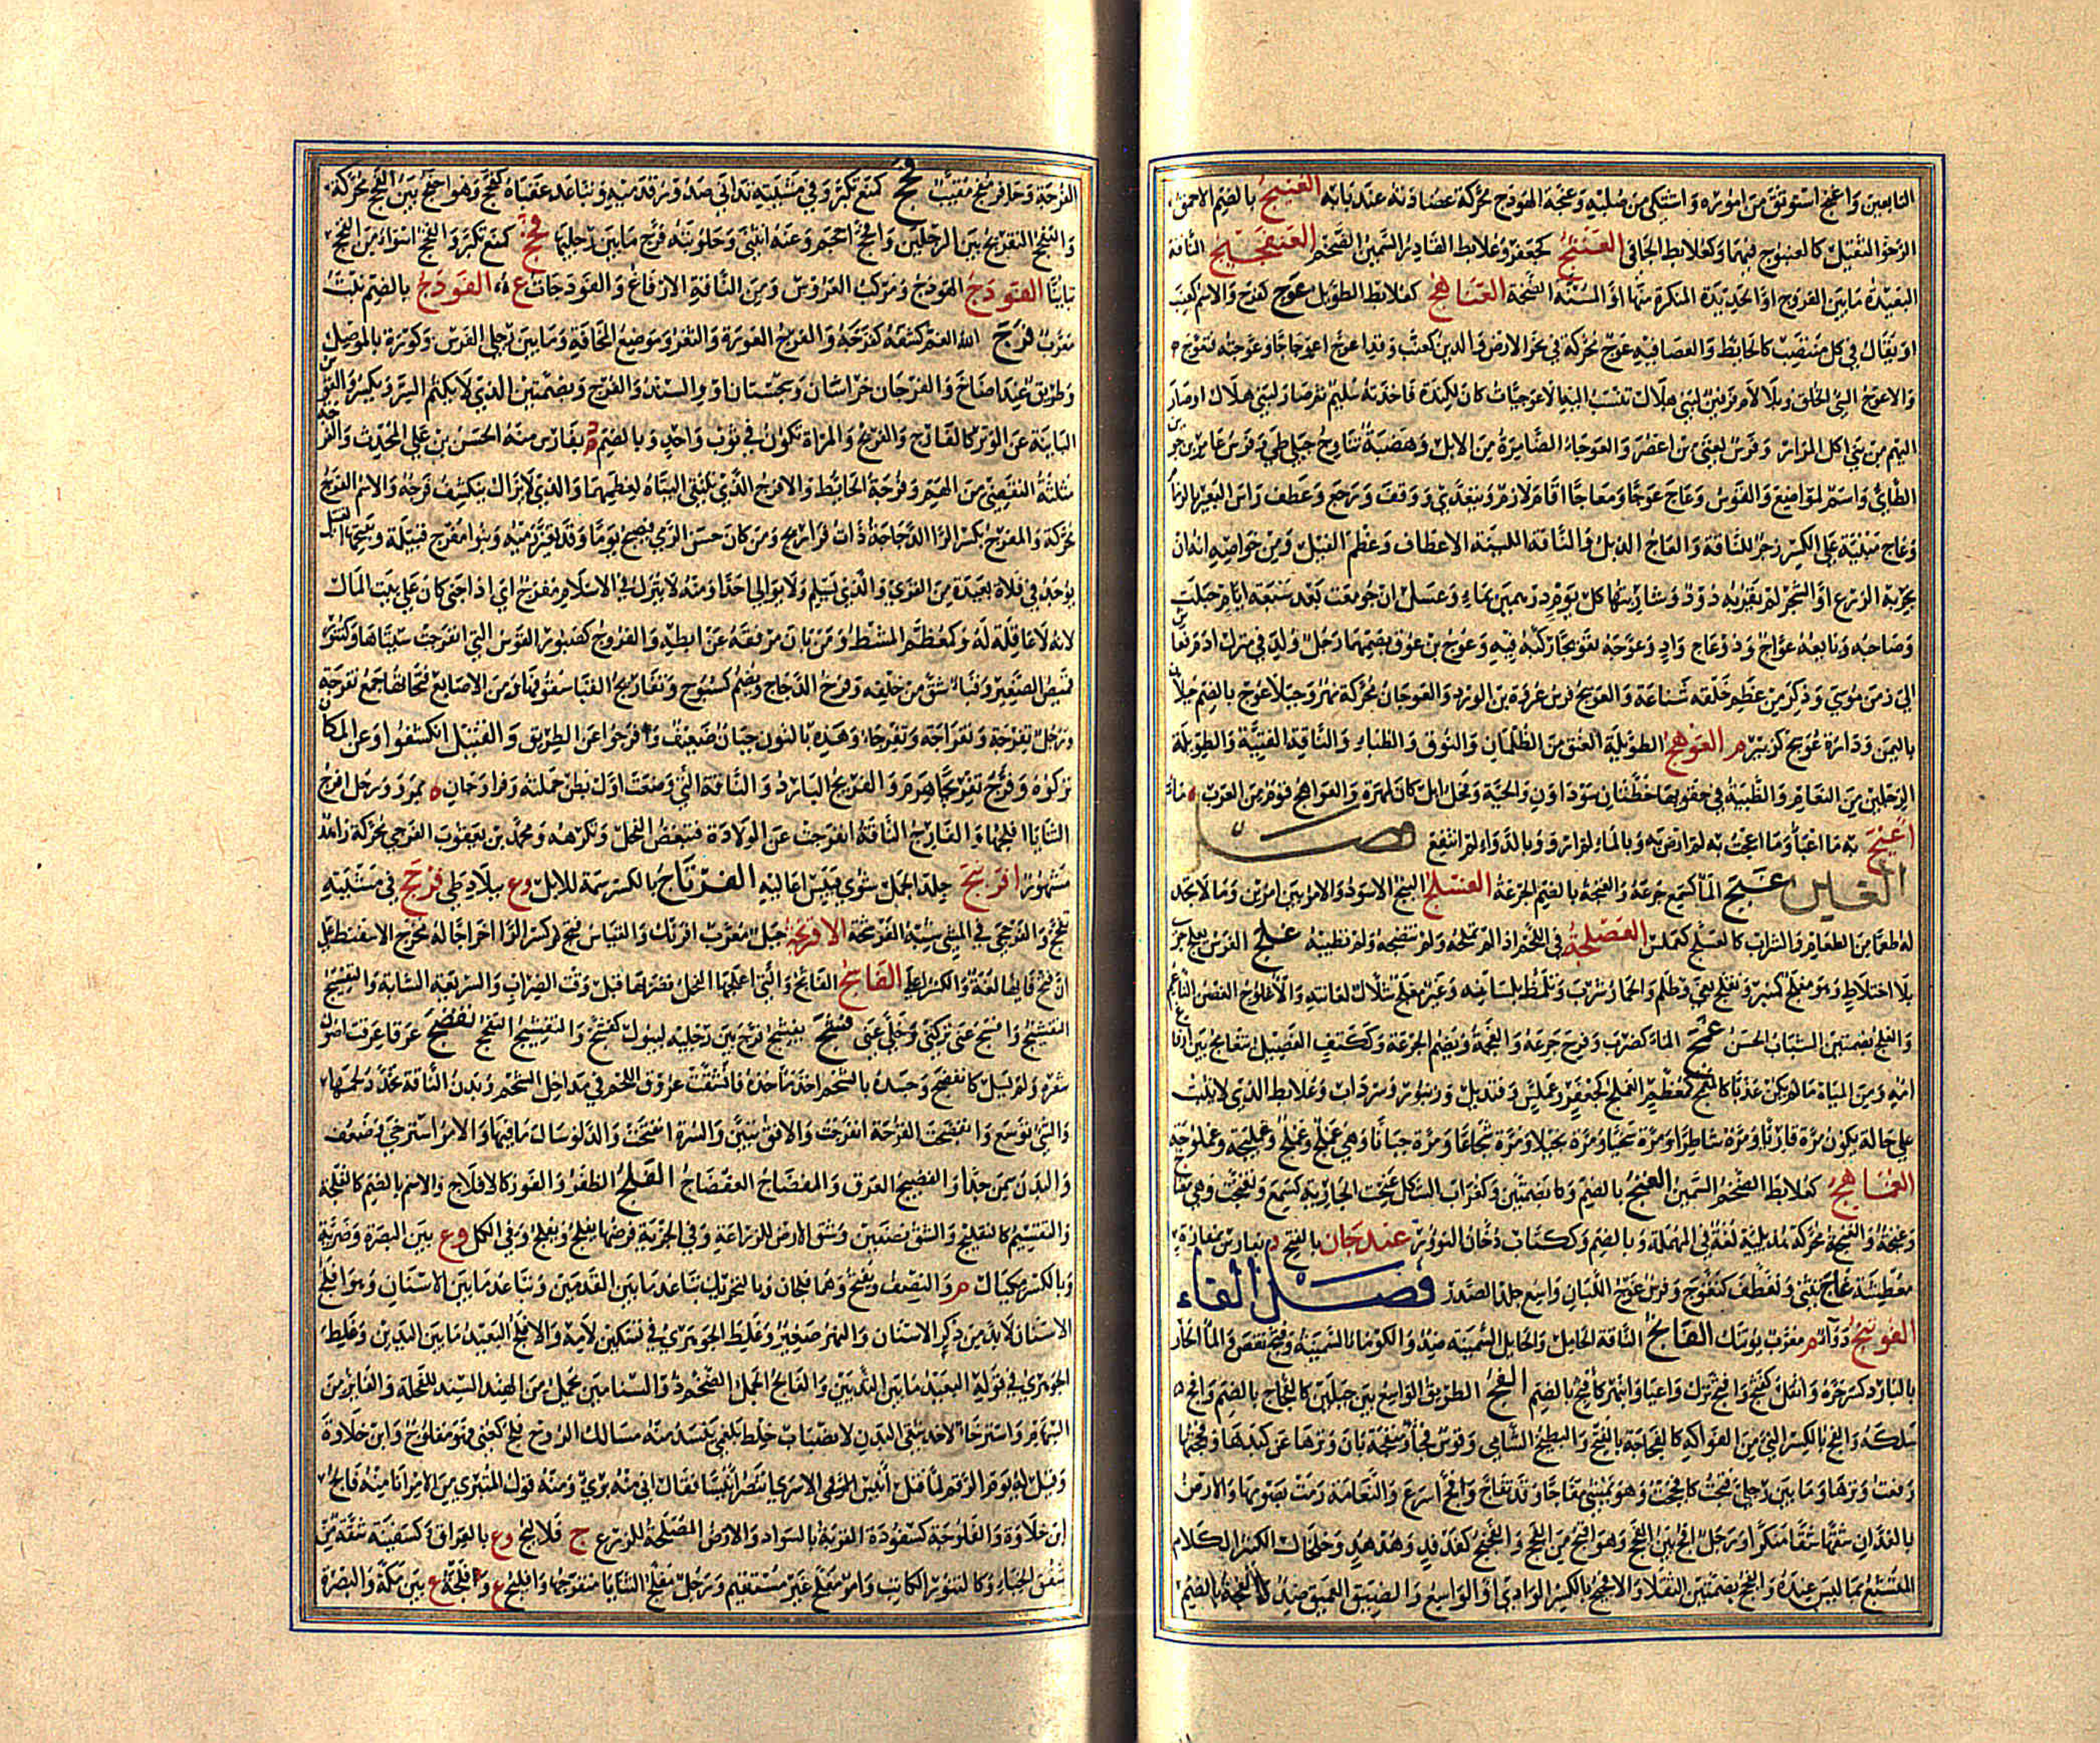 التابعين واعنج استوثق من اموره واشتكى من صلبه وعنجة الهودج محركة عضادته عند بابه العنبج بالضم الاحمق
الرخو الثقيل كالعنبوج فيهما وكعلابط الجافي العنثج كجعفر وعلابط الفادر السمين الضخم العنفجيج الناقة
البعيدة ما بين الفروج او الحديدة المنكرة منها او المسنة الضخمة العناهج كعلابط الطويل عوج كفرح والاسم كعنب
او يقال في كل منتصب كالحائط والعصا فيه عوج محركة وفي نحو الارض والدين كعنب وقد اعوج اعوجاجا وعوجته فتعوج
والاعوج السيئ الخلق وبلا لام فرس لبني هلال تنسب اليه الاعوجيات كان لكندة فاخذته سليم ثم صار لبني هلال او صار
اليهم من بني اكل المرار وفرس لغني بن اعصر والعوجاء الضامرة من الابل وهضبة تناوح جبلي طي وفرس عامر بن جوين
الطائي واسم لمواضع والقوس وعاج عوجا ومعاجا اقام لازم ومتعد ووقف ورجع وعطف راس البعير بالزمام
وعاج مبنية على الكسر زجر للناقة والعاج الذبل والناقة اللينة الاعطاف وعظم الفيل ومن خواصه انه ان
بخر به الزرع او الشجر لم يقربه دود وشاربتها كل يوم درهمين بماء وعسل ان جومعت بعد سبعة ايام حبلت
وصاحبه وبائعه عواج وذو عاج واد وعوجه تعويجا ركبه فيه وعوج بن عوق بضمهما رجل ولد في منزل ادم فعاش
الى زمن موسى وذكر من عظم خلقه شناعة والعويج فرس عروة بن الورد والعوجان محركة نهر وجبلا عوج بالضم جبلان
باليمن ودارة عويج كزبير م العوهج الطويلة العنق من الظلمان والنوق والظباء والناقة الفتية والطويلة
الرجلين من النعام والظبية في حقويها خطتان سوداوان والحية وفحل ابل كان لمهرة والعواهج قوم من العرب ما
اعيج به ما اعبأ وما اعجت به لم ارض به وبالماء لم ارو وبالدواء لم انتفع فصل
الغين غبج الماء كسمع جرعه والغبجة بالضم الجرعة الغسلج البنج الاسود والامر بين امرين وما لا تجد
له طعما من الطعام والشراب كالغسلج كعملس الغضلجة في اللحم اذا لم تملحه ولم تنضجه ولم تطيبه غلج الفرس يغلج جرى
بلا اختلاط وهو مغلج كمنبر وتغلج بغى وظلم والحمار شرب وتلمظ بلسانه وعير مغلج شلال لعانته والاغلوج الغصن الناعم
والغلج بضمتين الشباب الحسن غمج الماء كضرب وفرح جرعه والغمجة ويضم الجرعة وككتف الفصيل يتغامج بين ارفاغ
امه ومن المياه ما لم يكن عذبا كالمغمج كمعظم الغملج كجعفر وعملس وقنديل وزنبور وسرداب وعلابط الذي لا يثبت
على حالة يكون مرة قارئا ومرة شاطرا ومرة سخيا ومرة بخيلا ومرة شجاعا ومرة جبانا وهي غملج وغملج وغمليجة وغملوجة
الغماهج كعلابط الضخم السمين الغنج بالضم وكضمتين وكغراب الشكل غنجت الجارية كسمع وتغنجت وهي مغناج
وغنجة والغنجة محركة هذيلية لغة في المهملة وبالضم وككتاب دخان النؤور غندجان بالفتح د بفارس بمفازة
معطشة غاج تثنى وتعطف كتغوج وفرس غوج اللبان واسع جلد الصدر فصل الفاء
الفوتنج دواء م معرب بوتنك الفاثج الناقة الحامل والحائل السمينة ضد والكوماء السمينة وفثج نقص والماء الحار
بالبارد كسر حره واثقل كفثج وافثج ترك واعيا وانبهر كافثج بالضم الفج الطريق الواسع بين جبلين كالفجاج بالضم وافج
سلكه والفج بالكسر النيئ من الفواكه كالفجاجة بالفتح والبطيخ الشامي وقوس فجاء ومنفجة بان وترها عن كبدها وفججتها
رفعت وترها وما بين رجلي فتحت كافججت وهو يمشي مفاجا وقد تفاج وافج اسرع والنعامة رمت بصومها والارض
بالفدان شقها شقا منكرا ورجل افج بين الفجج وهو اقبح من الفحج والفجفج كفدفد وهدهد وخلخال الكثير الكلام
المتشبع بما ليس عنده والفجج بضمتين الثقلاء والافجيج بالكسر الوادي او الواسع والضيق العميق ضد كالفجة بالضم
الفرجة وحافر مفج مقبب فحج كمنع تكبر وفي مشيته تدانى صدور قدميه وتباعد عقباه كفحج وهو افحج بين الفحج محركة
والتفحج التفريج بين الرجلين وافحج احجم وعنه انثنى وحلوبته فرج ما بين رجليها فخج كمنع تكبر والفخج اسواء من الفحج
تباينا الفودج الهودج ومركب العروس ومن الناقة الارفاغ والفودجات ع الفودج بالضم نبت
معرب فرج الله الغم كشفه كفرجه والفرج العورة والثغر وموضع المخافة وما بين رجلي الفرس وكورة بالموصل
وطريق عند اضاخ والفرجان خراسان وسجستان او والسند والفرج وبضمتين الذي لا يكتم السر ويكسر والقوس
البائنة عن الوتر كالفارج والفريج والمراة تكون في ثوب واحد وبالضم د بفارس منه الحسن بن علي المحدث والفرجة
مثلثة التفصي من الهم وفرجة الحائط والافرج الذي لا تلتقي اليتاه لعظمهما والذي لا يزال ينكشف فرجه والاسم الفرج
محركة والمفرج بكسر الراء الدجاجة ذات فراريج ومن كان حسن الرمي فيصبح يوما وقد تغير رميه وبنو مفرج قبيلة وبفتحها القتيل
يوجد في فلاة بعيدة من القرى والذي يسلم ولا يوالي احدا ومنه لا يترك في الاسلام مفرج اي اذا جنى كان على بيت المال
لانه لا عاقلة له وكمعظم المشط ومن بان مرفقه عن ابطه والفروج كصبور القوس التي انفرجت سيتاها وكتنور
قميص الصغير وقباء شق من خلفه وفرخ الدجاج ويضم كسبوح وتفاريج القباء شقوقها ومن الاصابع فتحاتها جمع تفرجة
ورجل تفرجة وتفراجة وتفرجاء وهذه بالنون جبان ضعيف وافرجوا عن الطريق والقتيل انكشفوا وعن المكان
تركوه وفرج تفريجا هرم والفريج البارد والناقة التي وضعت اول بطن حملته وفراوجان ة بمرو ورجل افرج
الثنايا افلجها والفارج الناقة انفرجت عن الولادة فتبغض الفحل وتكرهه ومحمد بن يعقوب الفرجي محركة زاهد
مشهور افرنبج جلد الحمل شوي فيبس اعاليه الفرتاج بالكسر سمة للابل وع ببلاد طي فرحج في مشيته
تفحج والفرحجى في المشي شبه الفرشحة الافرنجة جيل معرب افرنك والقياس كسر الراء اخراجا له مخرج الاسفنط على
ان فتح فائها لغة والكسر اعلى الفاسج الفائج والتي اعجلها الفحل فضربها قبل وقت الضراب والسريعة الشابة والتفسيج
التفشيج وافسج عني تركني وخلى عني فشج يفشج فرج بين رجليه ليبول كفشج والتفشيج التفحج تفضج عرقا عرقت اصول
شعره ولم يسل كانفضج وجسده بالشحم اخذ ماخذه فانشقت عروق اللحم في مداخل الشحم وبدن الناقة تخدد لحمها
والشيئ توسع وانفضجت القرحة انفرجت والافق تبين والسرة انفتحت والدلو سال ما فيها والامر استرخى وضعف
والبدن سمن جدا والفضيج العرق والمفضاج العفضاج الفلج الظفر والفوز كالافلاج والاسم بالضم كالفلجة
والتقسيم كالتفليج والشق نصفين وشق الارض للزراعة وفي الجزية فرضها يفلج ويفلج وفي الكل وع بين البصرة وضرية
وبالكسر مكيال م والنصف ويفتح وهما فلجان وبالتحريك تباعد ما بين القدمين وتباعد ما بين الاسنان وهو افلج
الاسنان لا بد من ذكر الاسنان والنهر صغير وغلط الجوهري في تسكين لامه والافلج البعيد ما بين اليدين وغلط
الجوهري في قوله البعيد ما بين الثديين والفالج الجمل الضخم ذو السنامين يحمل من الهند السند للفحلة والفائز من
السهام واسترخاء لاحد شقي البدن لانصباب خلط بلغمي تنسد منه مسالك الروح فلج كعني فهو مفلوج وابن خلاوة
وقيل له يوم الرقم لما قتل انيس الاسرى اتنصر انيسا فقال اني منه بريء ومنه قول المتبري من الامر انا منه فالج
ابن خلاوة والفلوجة كسفودة القرية بالسواد والارض المصلحة للزرع ج فلاليج وع بالعراق وكسفينة شقة من
شقق الخباء وكالتنور الكاتب وامر مفلج غير مستقيم ورجل مفلج الثنايا منفرجها وافليج ع وافلجة ع بين مكة والبصرة